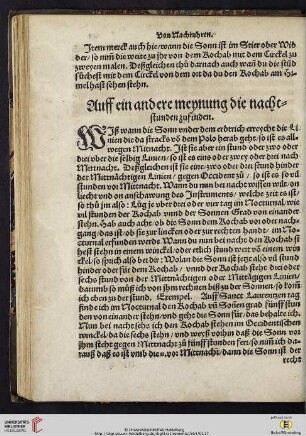 Von Nachtuhren.
Jtem merck auch hie/wann die Sonn ist im Stier oder Wid
der/ so nim die weite zu jhr von dem Kochab mit dem Circkel zu
zweyen malen. Deßgleichen thů darnach auch wañ du die stůd
sůchest mit dem Circkel von dem ort da du den Kochab am hi-
mel hast sehen stehn.
Auff ein andere meynung die nacht-
stunden zufinden.
WJß wann die Sonn vnder dem erdtrich erreycht die
linien die da stracks vō dem Polo herab geht/ so ist es all-
wegen Mitnacht. Jst sie aber ein stund oder zwo oder
drei vber die selbig Linien/ so ist es eins oder zwey oder drei nach
Mitnacht. Deßgleichen ist sie eine/zwo oder drei stund hinder
der Mitnächtigen Linien/ gegen Occident zů/ so ist es so vil
stunden vor Mitnacht. Wann du nun bei nacht wissen wilt on
liecht vnd on anschawung des Instruments/ welche zeit es ist/
so thů jm also: Lůg je vber drei oder vier tag im Nocturnal, wie
vil stunden der Kochab vnnd der Sonnen Grad von einander
stehn. Hab auch acht/ ob die Sonn dem Kochab vor oder nach-
gang/das ist/ob sie zur lincken oder zur rechten handt/ im No-
cturnal erfunden werde Wann du nun bei nacht den Kochab si-
hest stehn in einem winckel/oder etlich stund weit võ einem win
ckel/so sprich also bei dir: Wolan die Sonn ist jetzo also vil stund
hinder oder für dem Kochab/ vnnd der Kochab steht drei oder
sechs stunden von der Mitnächtigen oder Mittägigen Linien/
darumb so můß ich von jhm rechen biß zu der Sonnen/ so kom̃
ich eben zu der stund. Exempel. Auff Sanct Laurentzen tag
find ich im Nocturnal den Kochab võ Soñen grad fünfft stun
den von einander stehn/vnd geht die Sonn für/das behalte ich.
Nun bei nacht sehe ich den Kochab stehen im Occidentischen
winckel die sechs stunden/ vnd weyß vorhin daß die Sonn vor
jhm steht gegen Mitnacht zu fünff stunden fern/so nim̃ ich da-
rauß daß es ist vmb die 11. vor Mitnacht/ dann die Sonn ist der
recht